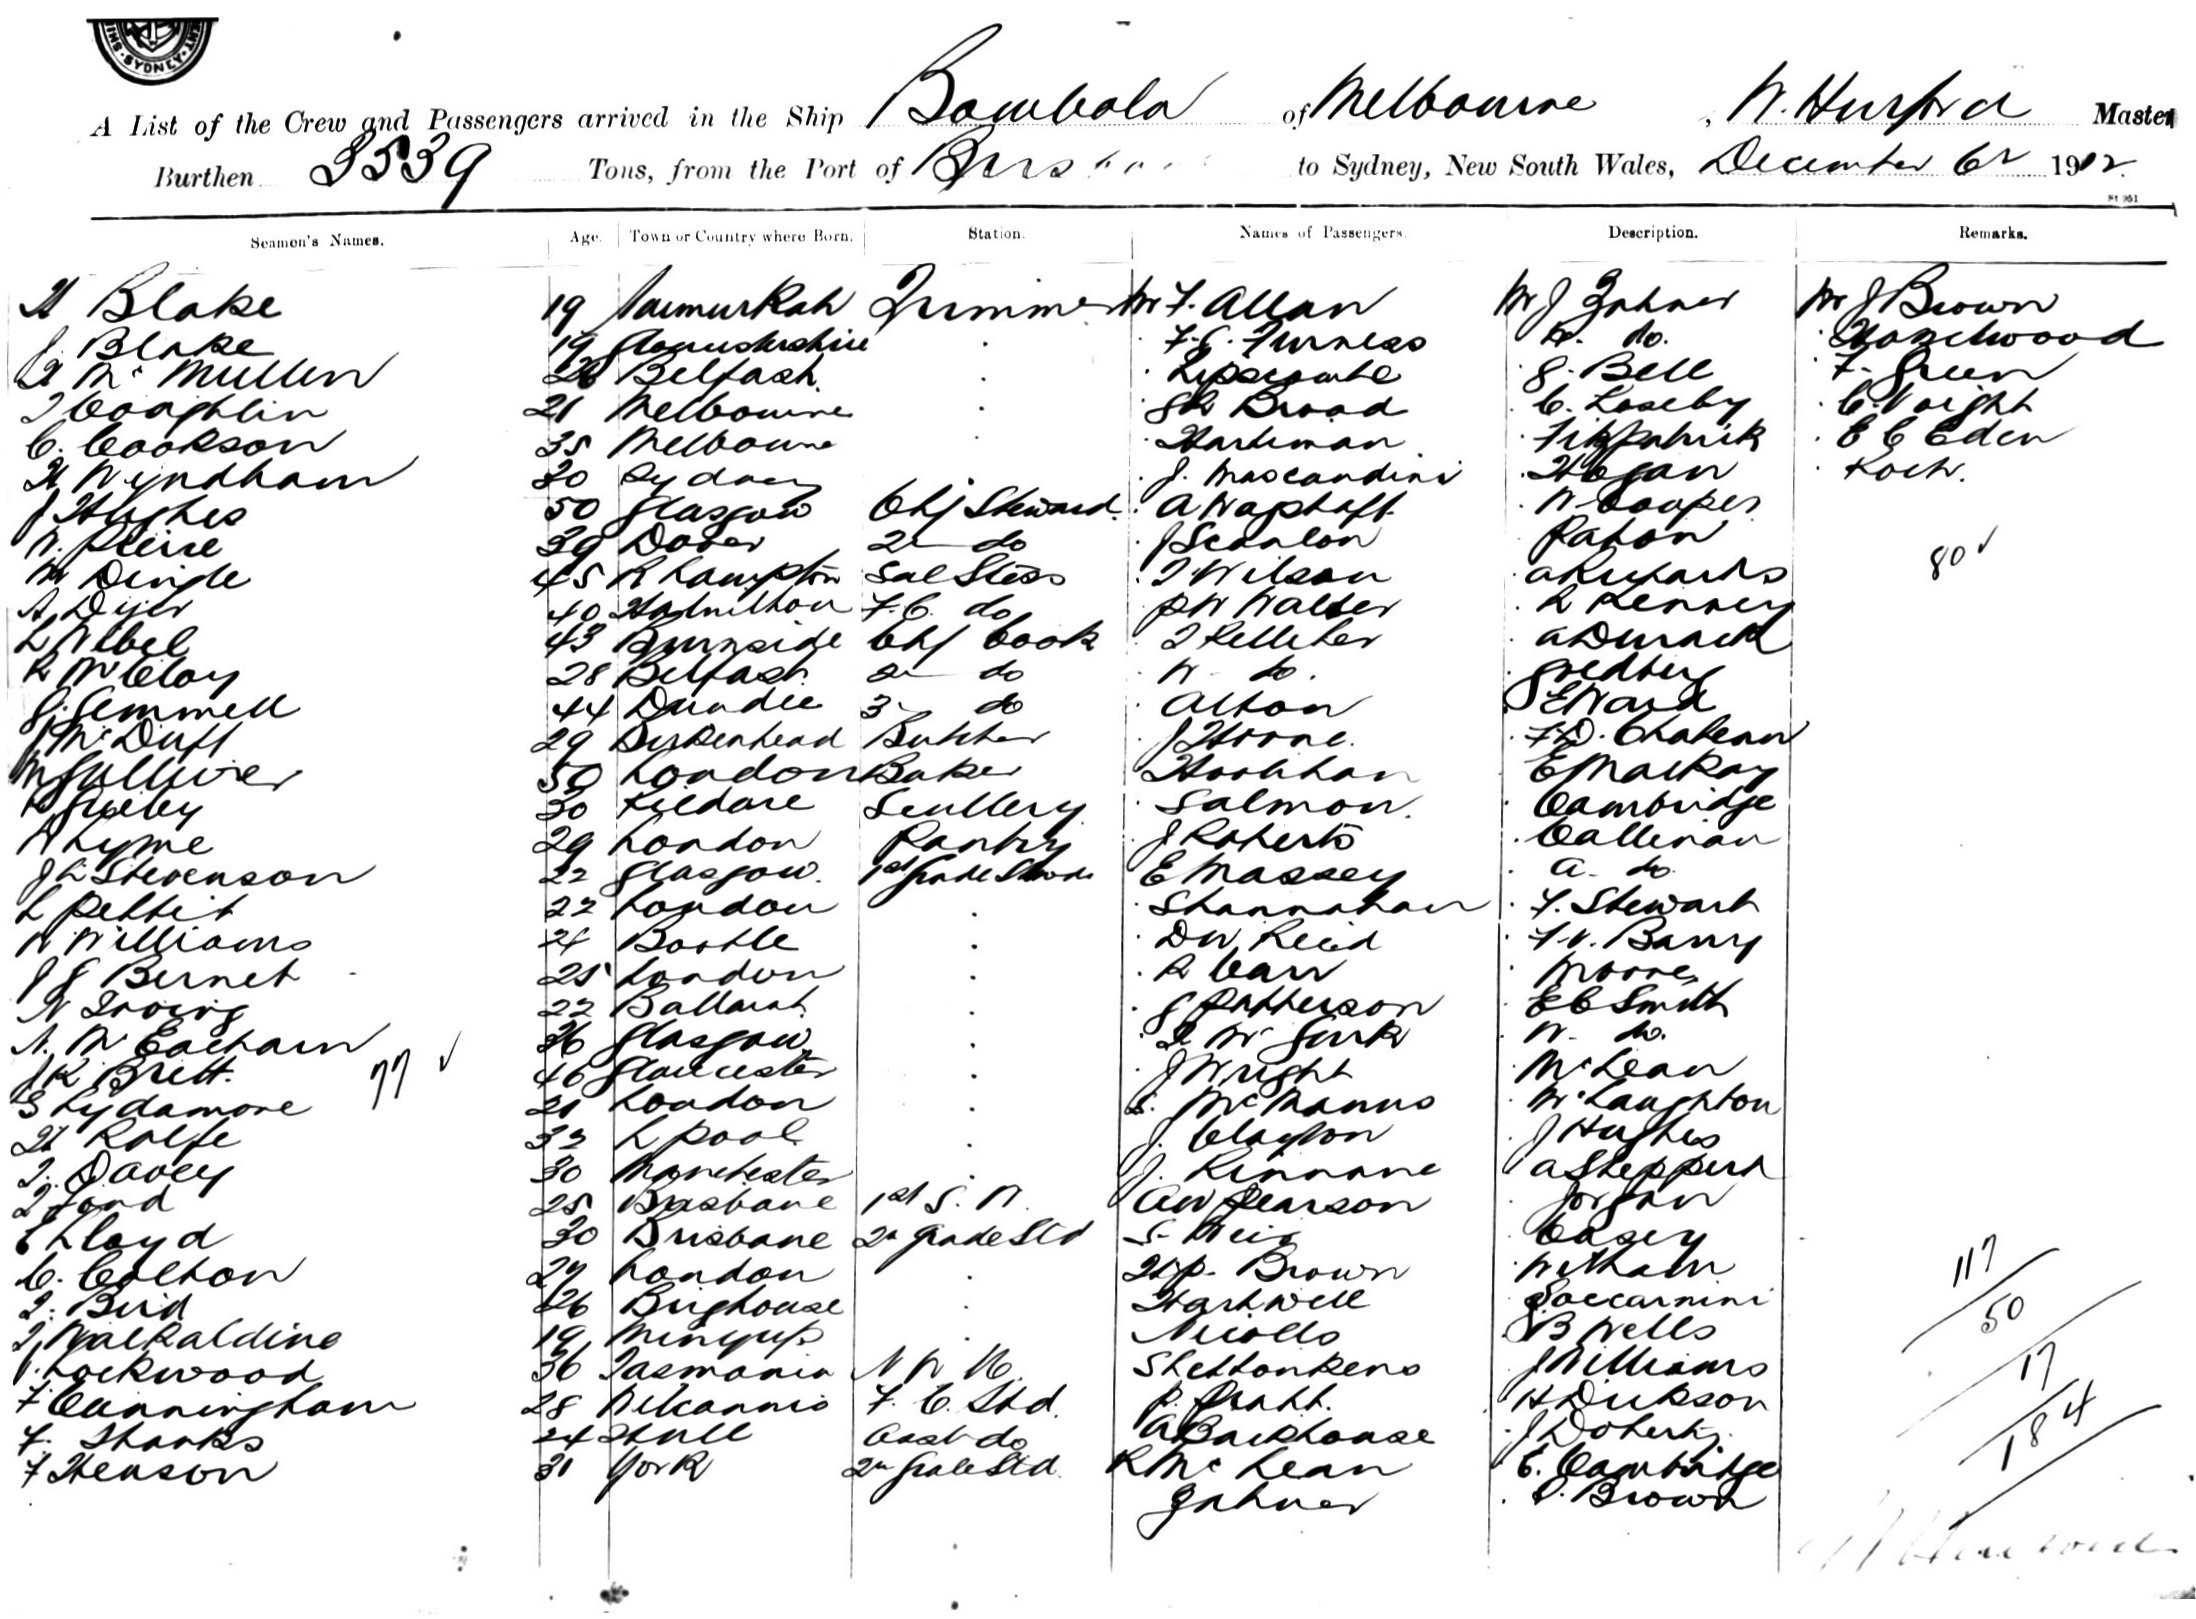 SYDNEY
A List of the Crew and Passengers arrived in the Ship Bombala of Melbourne, W. Hurford Master
Burthen 3539 Tons, from the Port of to Sydney, New South Wales, December 6 1912
Seamen's Names. Age. Town or Country where Born. Station. Names of Passengers. Description. Remarks.
H Blake 19 Trimmer Mr F. Allan Mr J Zahner Mr J Brown
J. Blake 19 Gloucestershire F. G. Furness do. Hazelwood
H Mc Mullen 26 Belfast. Lipscombe G. Bell F. Green
J Coughlin 21 Melbourne Broad C. Loseby C. Voight
C. Cookson 35 Melbourne Hartman Fitzpatrick E C Eden
H Wyndham 30 Sydney J. Hogan Koch.
J Hughes 50 Glasgow Chf Steward. A W Cooper
W. Pierre 39 Dover 2 do J Scanlon Paton 80
M Dingle 45 R Hampton Sal Stess T Wilson A Richards
A. Dyer 40 Hamilton F. C. do P W Walter R Kenney
L Webel 43 Burnside Chf Cook T Kelleher A Durack
R McCloy 28 Belfast 2 do W do. Goldberg
G. Gemmell 44 Dundee 3 do Alton E Ward
J McDuff 29 Birkenhead Butcher J Horne. F. D. Chateau
M Gulliver 50 London Baker Hoolihan E Mackay
30 Kildare Scullery Salmon. Cambridge
Lyme 29 London Pantry J Roberts Callinan
J L Stevenson 22 Glasgow. 1st Grade E Massey A. do
L Pettit 22 London Shannahan F. Stewart
W Williams 24 Bootle D W Reid F. V. Barry
J G Bernet 25 London R Carr Moore
N Irving 22 Ballarat. G Patterson E C Smith
A. McEachern 36 Glasgow Mc Gurk W. do.
J K Britt. 77 46 Gloucester J Wright McLean
S Lydamore 21 London Mc Manus McLaughton
H Rolfe 32 L pool J. Clayton J Hughes
T. Davey 30 Manchester J. Kinnane A Sheppard
T Ford 25 Brisbane 1st S. W. A W Pearson Jordan
E Lloyd 30 Brisbane 2n Grade Std S. Weir Casey
C. Colton 27 London Brown Witham 117
T. Bird 26 Brighouse Hartwell 50
19 Minyip Nicolls B Wells
Lockwood 36 Tasmania J Williams 17
F Cunningham 28 Wilcannia F. C. Std. P. Pratt. H Dickson
F. Shanks 24 Hull do A Backhouse J Doherty. 184
F Henson 31 York 2n Grade Std. R Mc Lean E. Cambridge
Zahner Brown